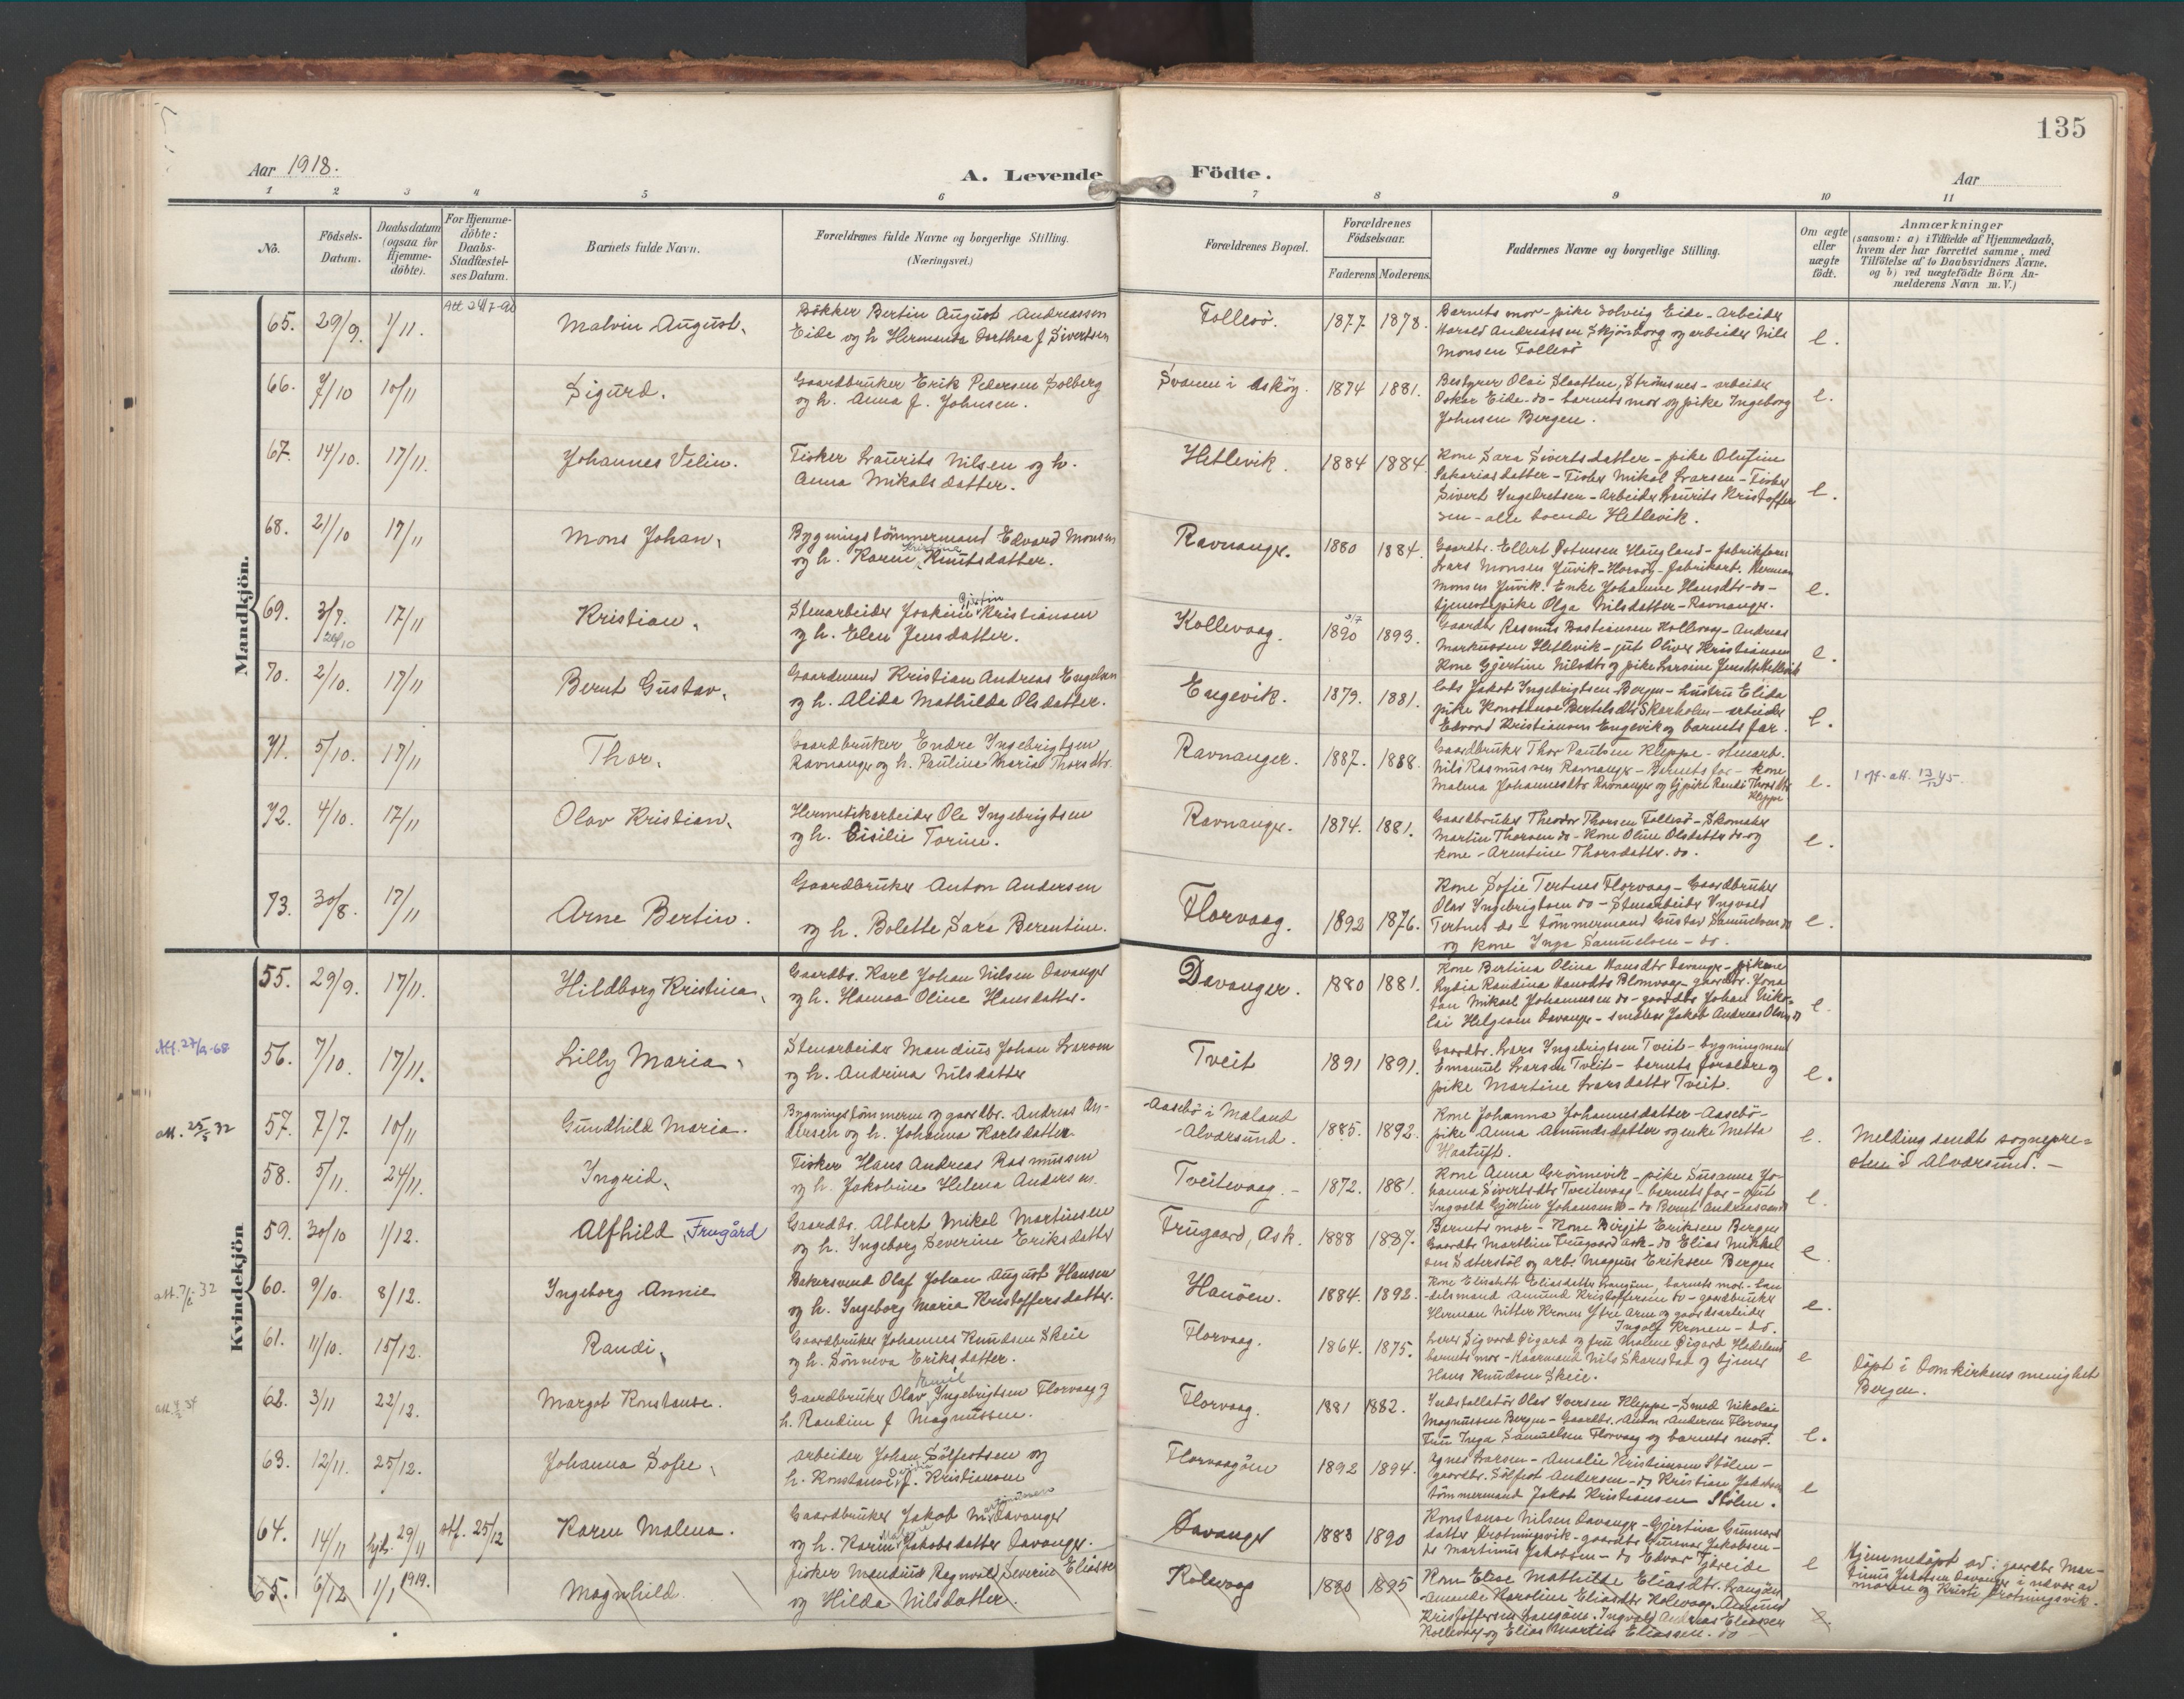 135
Aar 1918.
A. Levende
Födte.
Aar
1 2 3 4 5 6 7 8 9 10 11
No.
Födsels-Datum.
Daabsdatum (ogsaa for Hjemme-döbte).
For Hjemme-döbte: Daabs-Stadfæstel-ses Datum.
Barnets fulde Navn.
Forældrenes fulde Navne og borgerlige Stilling.
(Næringsvei.)
Forældrenes Bopæl.
Forældrenes Födselsaar.
Faderens Moderens
Faddernes Navne og borgerlige Stilling.
Om ægte eller uægte födt.
Anmærkninger
(saasom: a) i Tilfælde af Hjemmedaab,
hvem der har forrettet samme, med
Tilföielse af to Daabsvidners Navne,
og b) ved uægtefödte Börn An-
melderens Navn m.V.)
Mandkjön.
65. 29/9. 1/11. Malvin August. Bökker Bertin August Andreassen
Eide og h Hermanda Dorthea J Sivertsen
Follesö. 1877. 1878. Barnets mor - pike Solveig Eide - Arbeider
Harald Andreassen Skjönborg og arbeider Nils
Monsen Follesö e.
66. 7/10 10/11 Sigurd. Gaardbruker Erik Pedersen Solberg
og h. Anna J. Johnsen.
Svanen i Asköy. 1874 1881. Bestyrer Olai Slaatten, Strömsnes - arbeider
Oskar Eide - do - barnets mor og pike Ingeborg
Johnsen Bergen. e.
67. 14/10. 17/11. Johannes Velin. Fisker Laurits Nilsen og h.
Anna Mikalsdatter.
Hetlevik. 1884 1884. Kone Sara Sivertsdatter - pike Olufine
Sakariasdatter - Fisker Mikal Larsen - Fisker
Sivert Ingebretsen - Arbeider Laurits Kristoffer
sen - alle boende Hetlevik. e.
68. 21/10 17/11 Mons Johan. Bygningstömmermand Edvard Monsen
og h. Karen Knutsdatter.
Ravnanger. 1880 1884. Gaardbr. Ellert Ostensen Haugland - fabrikform
Lars Monsen Juvik - Horsöy - fabrikarb. Herman
Monsen Juvik. Enke Johanne Hansdtr - do -
tjenestepike Olga Nilsdatter - Ravnanger. e.
69. 3/7. 17/11 Kristian. Stenarbeider Joakim Kristiansen
og h. Elen Jensdatter.
Kollevaag. 1890 1893. Gaardbr Rasmus Bastiansen Hollevag - Andreas
Markussen Hetlevik - gut Oliver Kristiansen
Kone Gjertine Nilsdtr og pike Larsine Jensdtr Hetlevik e.
70. 2/10. 17/11 Bernt Gustav. Gaardmand Kristian Andreas Engelsen
og h. Alida Mathilda Olsdatter.
Engevik. 1879. 1881. Lods Jakob Ingebrigtsen Bergen - hustru Elida
pike Konstanse Bertelsdtr Skarholm - arbeider
Edvard Kristiansen Engevik og barnets far. e.
71. 5/10. 17/11 Thor. Gaardbruker Endre Ingebrigtsen
Ravnanger og h. Pauline Maria Thorsdtr.
Ravnanger. 1887. 1888. Gaardbruker Thor Paulsen Kleppe - stenarb.
Nils Rasmussen Ravnanger - Barnets far - kone
Malena Johannesdtr Ravnanger og tj.pike Randi Thorsdtr
Kleppe e.
72. 4/10. 17/11 Olav Kristian. Hermetikarbeider Ole Ingebrigtsen
og h. Cisilie Torine.
Ravnanger. 1874. 1881. Gaardbruker Theodor Thorsen Follesö - Skomaker
Martin Thorsen do - Kone Oline Olsdatter do og
kone - Arentine Thorsdatter. do. e.
73. 30/8. 17/11 Arne Bertin. Gaardbruker Anton Andersen
og h. Bolette Sara Berentine.
Florvaag. 1892 1876. Kone Sofie Tertnes Florvaag - Gaardbruker
Olav Ingebrigtsen do - Stenarbeider Ingvald
Tertnes do - tömmermand Gustav Samuelsen do
og kone Inga Samuelsen - do. e.
Kvindekjön
55. 29/9. 17/11. Hildborg Kristina. Gaardbr. Karl Johan Nilsen Davanger
og h. Hanna Oline Hansdatter.
Davanger. 1880 1881. Kone Bertina Olina Hansdtr Davanger - pikene
Lydia Randina Hansdtr Blomvaag - gaardbr. Jona
tan Mikael Johannesen do - gaardbr Johan Niko-
lai Helgesen Davanger - smedlær Jakob Andreas Olsen do e.
56. 7/10. 17/11. Lilly Maria. Stenarbeider Mandius Johan Larsen
og h. Andrina Nilsdatter
Tveit 1891 1891. Gaardbr. Lars Ingebrigtsen Tveit - bygningsmand
Emanuel Larsen Tveit - barnets foraldre og
pike Martine Larsdatter Tveit. e.
57. 7/7. 10/11 Gundhild Maria. Bygningstömmerm og gaardbr. Andreas An-
dersen og h. Johanna Karlsdatter
Aasebö i Meland
Alversund. 1885. 1892. Kone Johanna Johannesdatter - Aasebö -
pike Anna Amundsdatter og enke Metta
Haatuft. e. Melding sendt sognepre-
sten i Alversund. -
58. 5/11. 24/11. Ingrid. Fisker Hans Andreas Rasmussen
og h. Jakobine Helena Andersen.
Tveitevaag. - 1872. 1881. Kone Anna Grönnevik - pike Susanna Jo-
hanna Sivertsdtr Tveitevaag - barnets far - gut
Ingvald Gjertin Johansen do - do Bernt Andreassen do e.
59. 30/10 1/12. Alfhild Frugård Gaardbr. Albert Mikal Martinsen
og h. Ingeborg Severine Eriksdatter
Frugaard, Ask. 1888 1887. Barnets mor - Kone Birgit Eriksen Bergen
Gaardbr Marthin Frugaard Ask - do Elias Mikkel
sen Sæterstöl og arb. Magnus Eriksen Bergen e.
60. 9/10. 8/12. Ingeborg Annie Bakersvend Olaf Johan August Hansen
og h. Ingeborg Maria Kristoffersdatter.
Hanöen. 1884. 1892. Kone Elisabeth Eliasdatter Langöen, barnets mor - han
delsmand Amund Kristoffersen do - gaardbruker
Herman Nitter Kronen Ytre Arne og gaardsarbeider
Ingolf Kronen - do. e.
61. 11/10. 15/12. Randi. Gaardbruker Johannes Knudsen Skeie
og h. Sönneva Eriksdatter.
Florvaag. 1864. 1875. Lærer Sigvard Öigard og fru Malene Öigard Hadeland
barnets mor - Kaarmand Nils Skarestad og tjener
Hans Knudsen Skeie. e Döpt i Domkirkens menighet
Bergen.
62. 3/11 22/12. Margot Konstanse. Gaardbruker Olav Emil Ingebrigtsen Florvaag og
h. Randine J Magnussen.
Florvaag. 1881 1882. Installatör Olav Iversen Kleppe - Smed Nikolai
Magnussen Bergen - Gaardbr. Anton Andersen Florvaag
Fru Inga Samuelsen Florvaag og barnets mor. e.
63. 12/11. 25/12. Johanna Sofie. Arbeider Johan Sölfestsen og
h. Konstanse J. Kristiansen
Florvaagöen 1892 1894. Agnes Larsen - Amalie Kristiansen Stölen -
gaardbr. Sölfest Andersen - do Kristian Jakobsen
tömmermand Jakob Kristiansen Stölen. e
64. 14/11 hjd. 29/11 stf. 25/12 Karen Malena. Gaardbruker Jakob M. Davanger
og h. Karen Malene Jakobsdatter Davanger.
Davanger 1883 1890 Konstanse Nilsen Davanger - Gjertine Gunnars
datter Drotningsvik - gaardbr Gunnar Jakobsen -
do Martinus Jakobsen - do Edvar Tjöreide e Hjemmedöpt av gaardbr Mar-
tinus Jakobsen Davanger i nærvær av
moren og Kristi Drotningsvik.
65. 6/12 1/1 1919. Magnhild. Fisker Mandius Ragnvald Severin Eliassen
og Hilda Nilsdatter.
Kolevaag 1890 1895 Kone Elise Mathilde Eliasdtr. Langöen
Amanda Karoline Eliasdtr Kolevaag. Amund
Kristoffersen Langöen. Ingvald Andreas Eliassen
Kollevaag og Elias Martin Eliassen. do e.